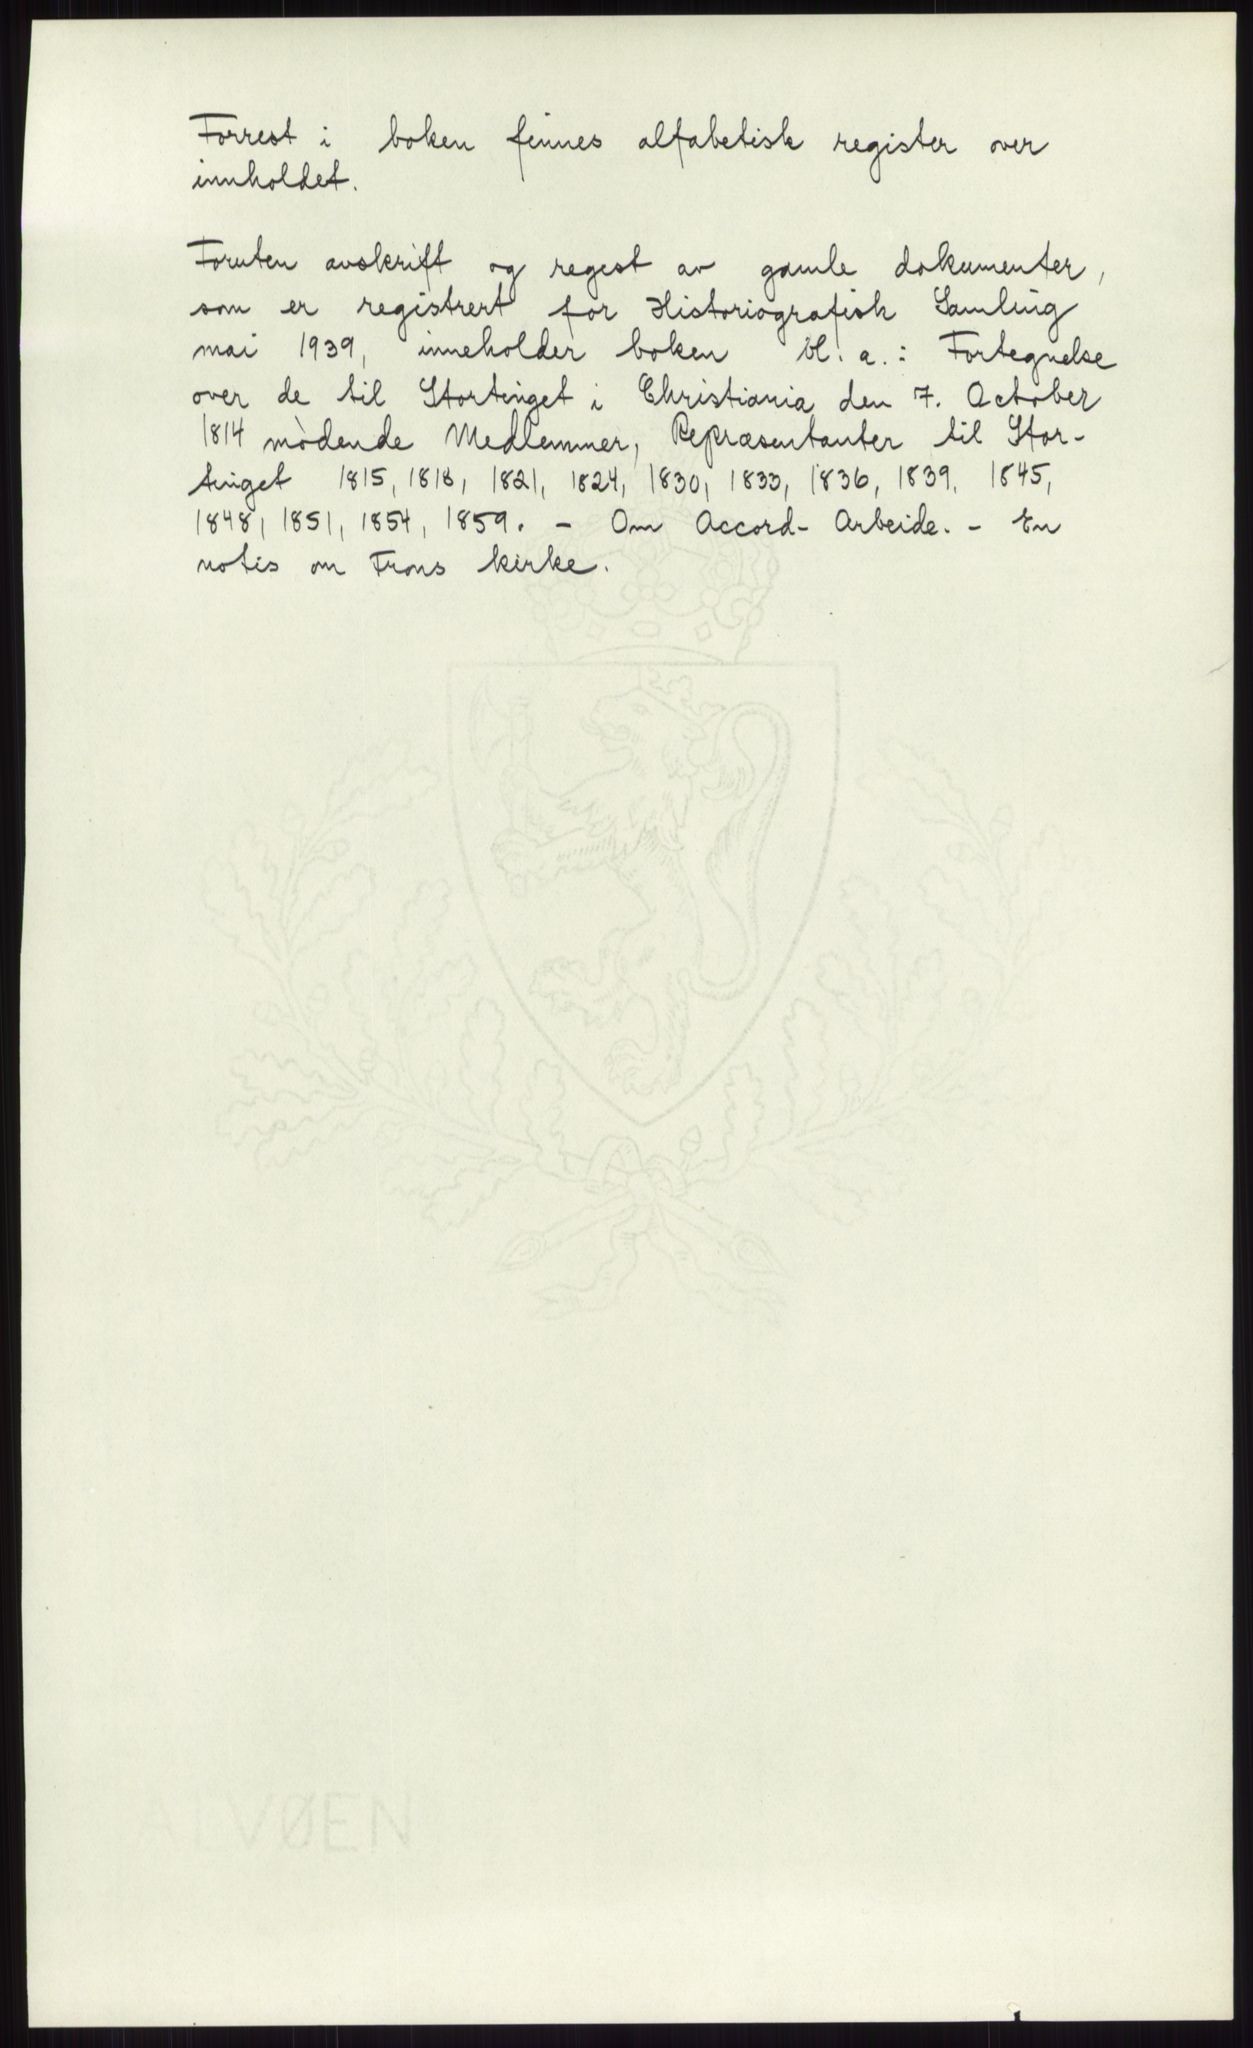 Forrest i boken finnes alfabetisk register over
innholdet.
Foruten avskrift og regest av gamle dokumenter,
som er registrert for Historiografisk Samling
mai 1939, inneholder boken bl. a.: Fortegnelse
over de til Stortinget i Christiania den 7. October
1814 mødende Medlemmer, Repræsentanter til Stor-
tinget 1815, 1818, 1821, 1824, 1830, 1833, 1836, 1839, 1845,
1848, 1851, 1854, 1859. - Om Accord-Arbeide. - En
notis om Frons kirke.
ALVØEN